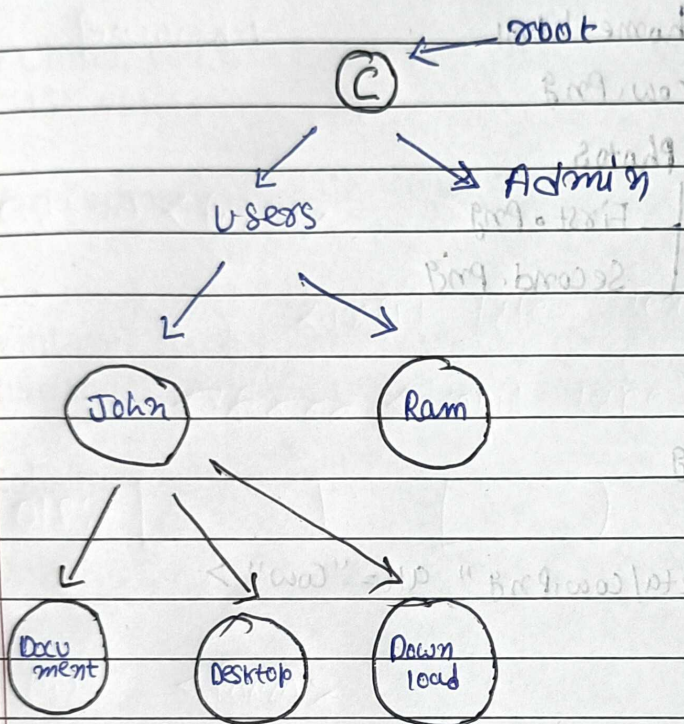 root
C
Users
Admin
John
Ram
Docu
ment
Desktop
Down
load